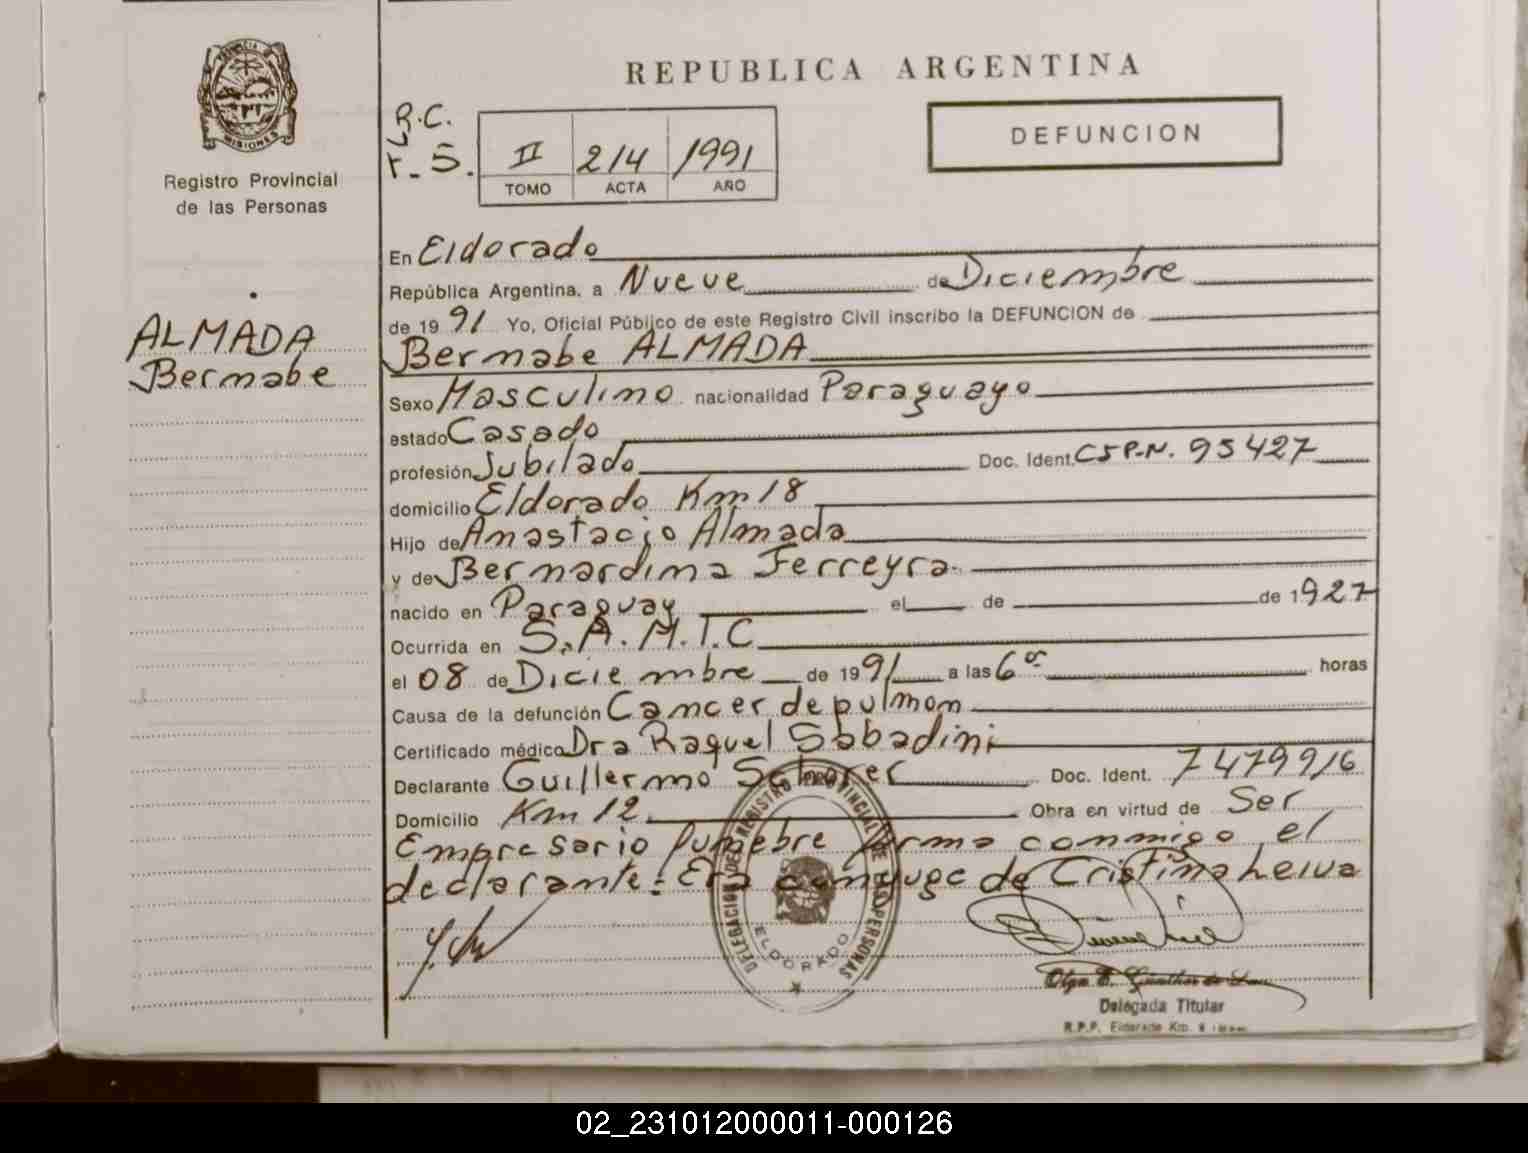 PROVINCIA DE
MISIONES
Registro Provincial
de las Personas
ALMADA
Bernabe
REPUBLICA ARGENTINA
R.C.
r. 5.
II 214 1991
TOMO ACTA AÑO
DEFUNCION
En Eldorado
República Argentina, a Nueve de Diciembre
de 1991 Yo, Oficial Público de este Registro Civil inscribo la DEFUNCION de
Bernabe ALMADA
Sexo Masculino nacionalidad Paraguayo
estado Casado
profesión Jubilado Doc. Ident. CSP.N. 95427
domicilio Eldorado Km 18
Hijo de Anastacio Almada
y de Bernardina Ferreyra.
nacido en Paraguay el de de 1927
Ocurrida en S.A.M.I.C
el 08 de Diciembre de 1991 a las 6 horas
Causa de la defunción Cancer de pulmon
Certificado médico Dra Raquel Sabadini
Declarante Guillermo Doc. Ident. 7479916
Domicilio Km 12. Obra en virtud de Ser
Empresario funebre firma conmigo el
declarante. Era conyuge de Cristina Leiva
DELEGACION DEL REGISTRO PROVINCIAL DE LAS PERSONAS
ELDORADO
Olga E. Günther de
Delegada Titular
R.P.P. Eldorado Km. 9
02_231012000011-000126